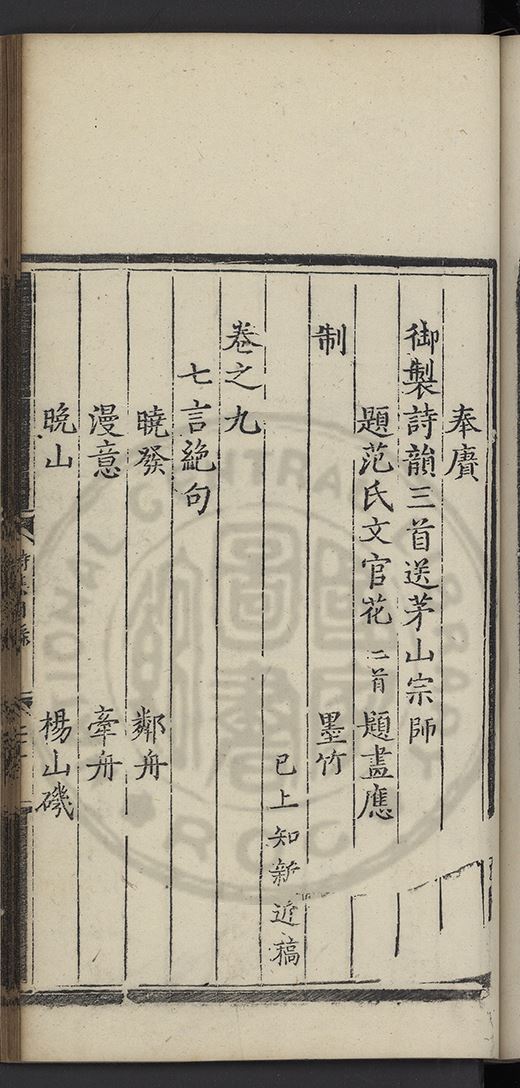 奉賡
御製詩韻三首送茅山宗師
題范氏文官花 二首 題畫應
制 墨竹
已上知新近稿
卷之九
七言絕句
曉發 鄰舟
漫意 牽舟
晩山 楊山磯